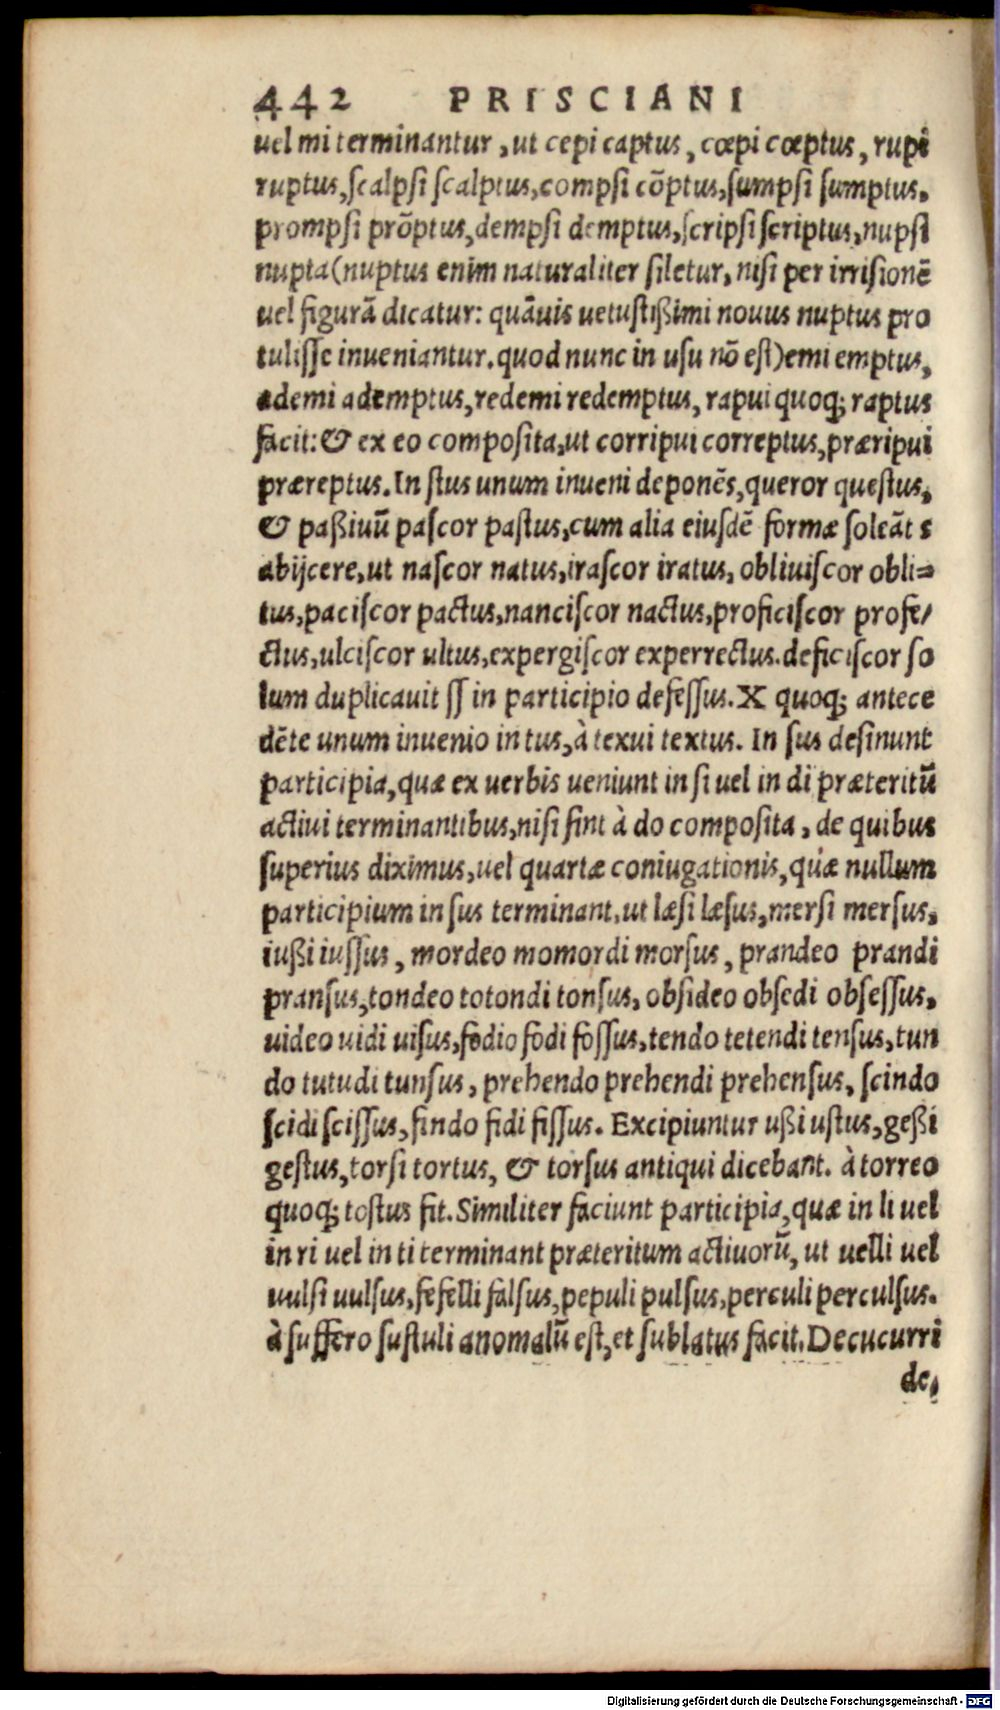 442 PRISCIANI
uel mi terminantur, ut cepi captus, cœpi cœptus, rupi
ruptus, scalpsi scalptus, compsi cõptus, sumpsi sumptus,
prompsi prõptus, dempsi demptus, scripsi scriptus, nupsi
nupta (nuptus enim naturaliter siletur, nisi per irrisionẽ
uel figurã dicatur: quãuis uetustißimi nouus nuptus pro
tulisse inueniantur. quod nunc in usu nõ est) emi emptus,
ademi ademptus, redemi redemptus, rapui quoq; raptus
facit: & ex eo composita, ut corripui correptus, præripui
præreptus. In stus unum inueni deponẽs, queror questus,
& paßiuũ pascor pastus, cum alia eiusdẽ formæ soleãt s
abijcere, ut nascor natus, irascor iratus, obliuiscor obli=
tus, paciscor pactus, nanciscor nactus, proficiscor profe/
ctus, ulciscor ultus, expergiscor experrectus. deficiscor so
lum duplicauit ss in participio defessus. X quoq; antece
dẽte unum inuenio in tus, à texui textus. In sus desinunt
participia, quæ ex uerbis ueniunt in si uel in di præteritũ
actiui terminantibus, nisi sint à do composita, de quibus
superius diximus, uel quartæ coniugationis, quæ nullum
participium in sus terminant. ut læsi læsus, mersi mersus,
iußi iussus, mordeo momordi morsus, prandeo prandi
pransus, tondeo totondi tonsus, obsideo obsedi obsessus,
uideo uidi uisus, fodio fodi fossus, tendo tetendi tensus, tun
do tutudi tunsus, prehendo prehendi prehensus, scindo
scidi scissus, findo fidi fissus. Excipiuntur ußi ustus, geßi
gestus, torsi tortus, & torsus antiqui dicebant. à torreo
quoq; tostus fit. Similiter faciunt participia, quæ in li uel
in ri uel in ti terminant præteritum actiuorũ, ut uelli uel
uulsi uulsus, fefelli falsus, pepuli pulsus, perculi perculsus.
à suffero sustuli anomalũ est, et sublatus facit. Decucurri
de,
Digitalisierung gefördert durch die Deutsche Forschungsgemeinschaft - DFG